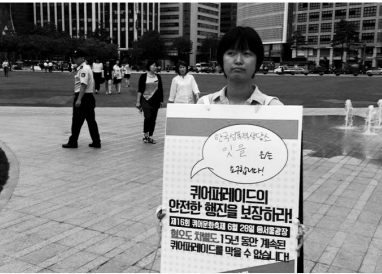 한국성폭력상담소
잇을 은(는)
요구합니다!
퀴어퍼레이드의
안전한 행진을 보장하라!
제16회 퀴어문화축제 6월 28일 @서울광장
혐오도 차별도 15년 동안 계속된
퀴어퍼레이드를 막을 수 없습니다!